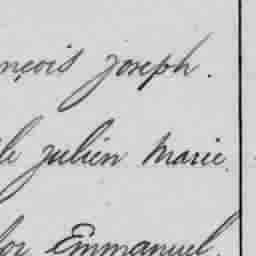 nçois Joseph.
le Julien Marie.
or Emmanuel.